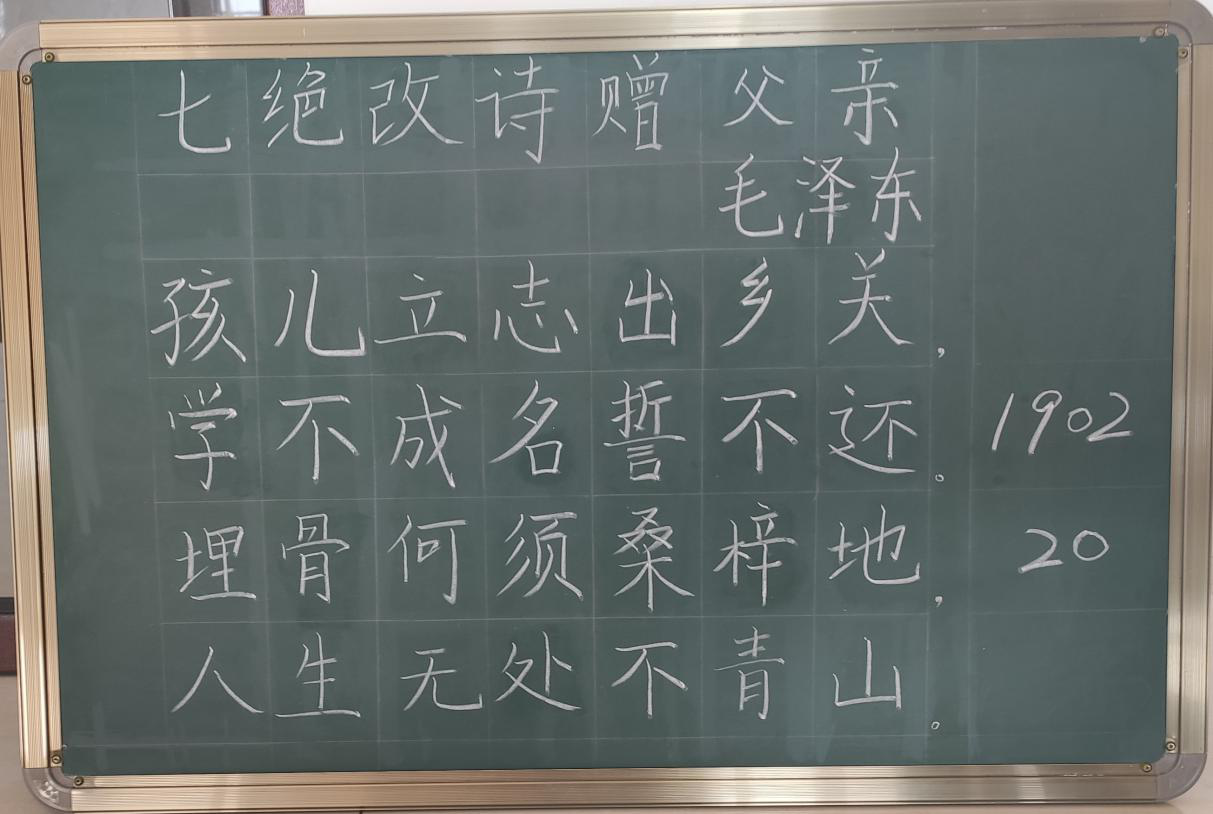 七绝改诗赠父亲
毛泽东
孩儿立志出乡关，
学不成名誓不还。
1902
埋骨何须桑梓地，
20
人生无处不青山。